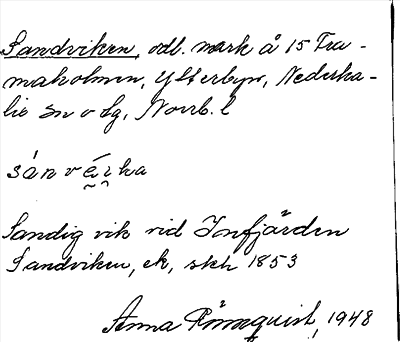 Sandviken, odl. mark å 15 Fra-
maholmen, Ytterbyn, Nederka-
lix sn o lg, Norrb. l
sánvérka
Sandig vik vid Infjärden
Sandviken, ek, skh 1853
Anna Rönnquist, 1948